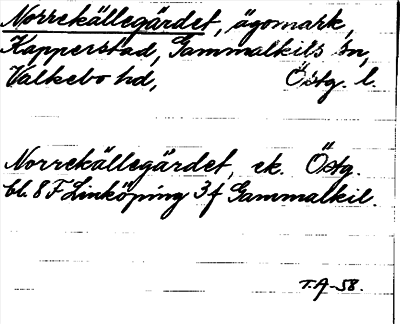 Norrekällegärdet, ägomark,
Kapperstad, Gammalkils sn,
Valkebo hd, Östg. l.
Norrekällegärdet, ek. Östg.
bl. 8 F Linköping 3 f Gammalkil.
T.A-58.